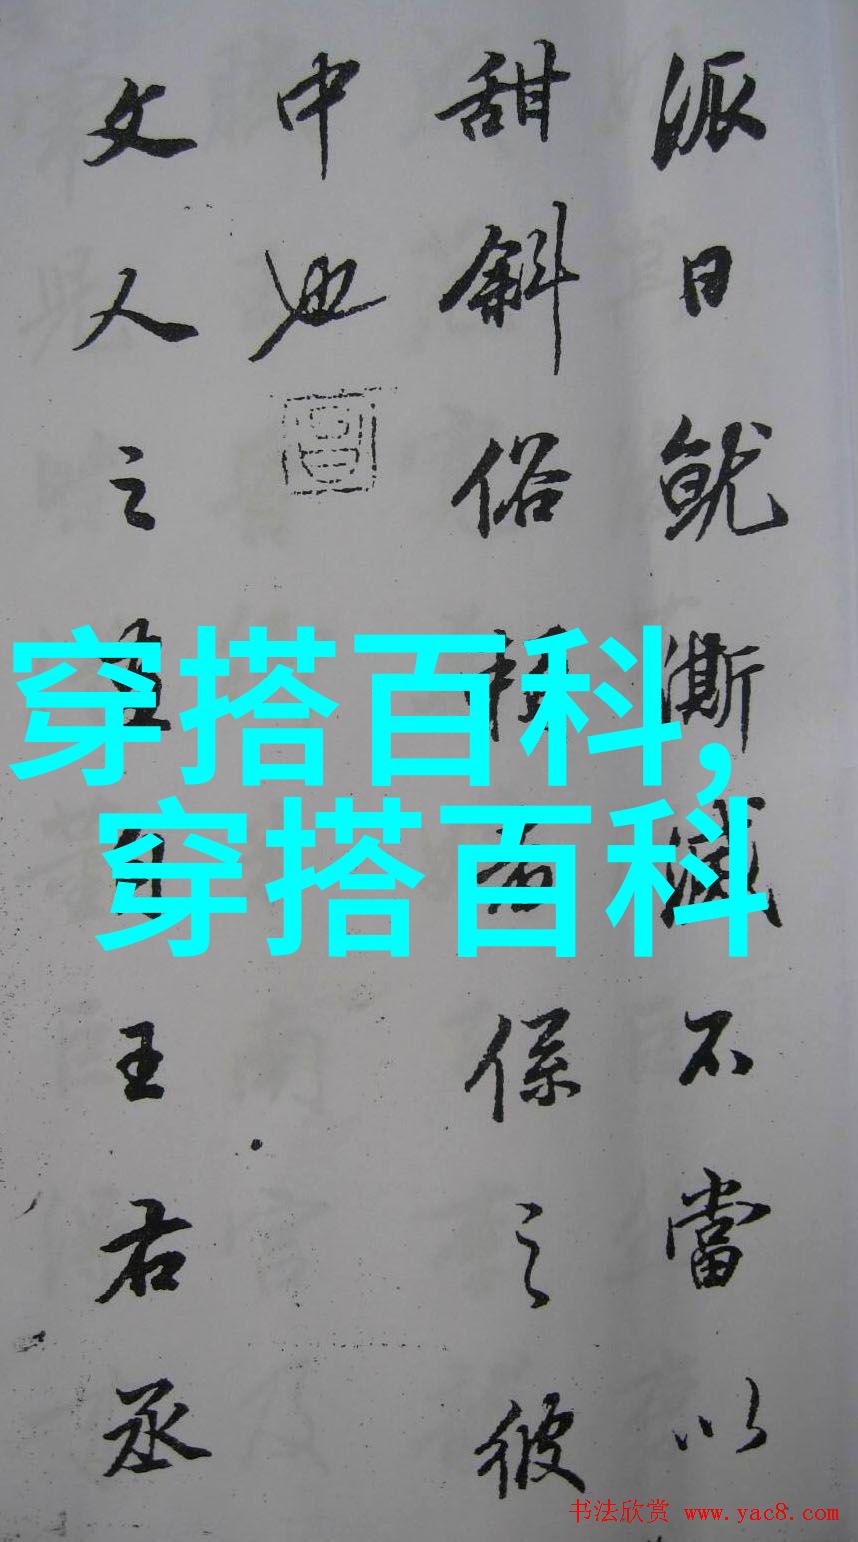 派日就澌滅不當以
甜斜俗者係之彼
中也
文人之畫自王右丞
穿搭百科,
穿搭百科
书法欣赏 www.yac8.com